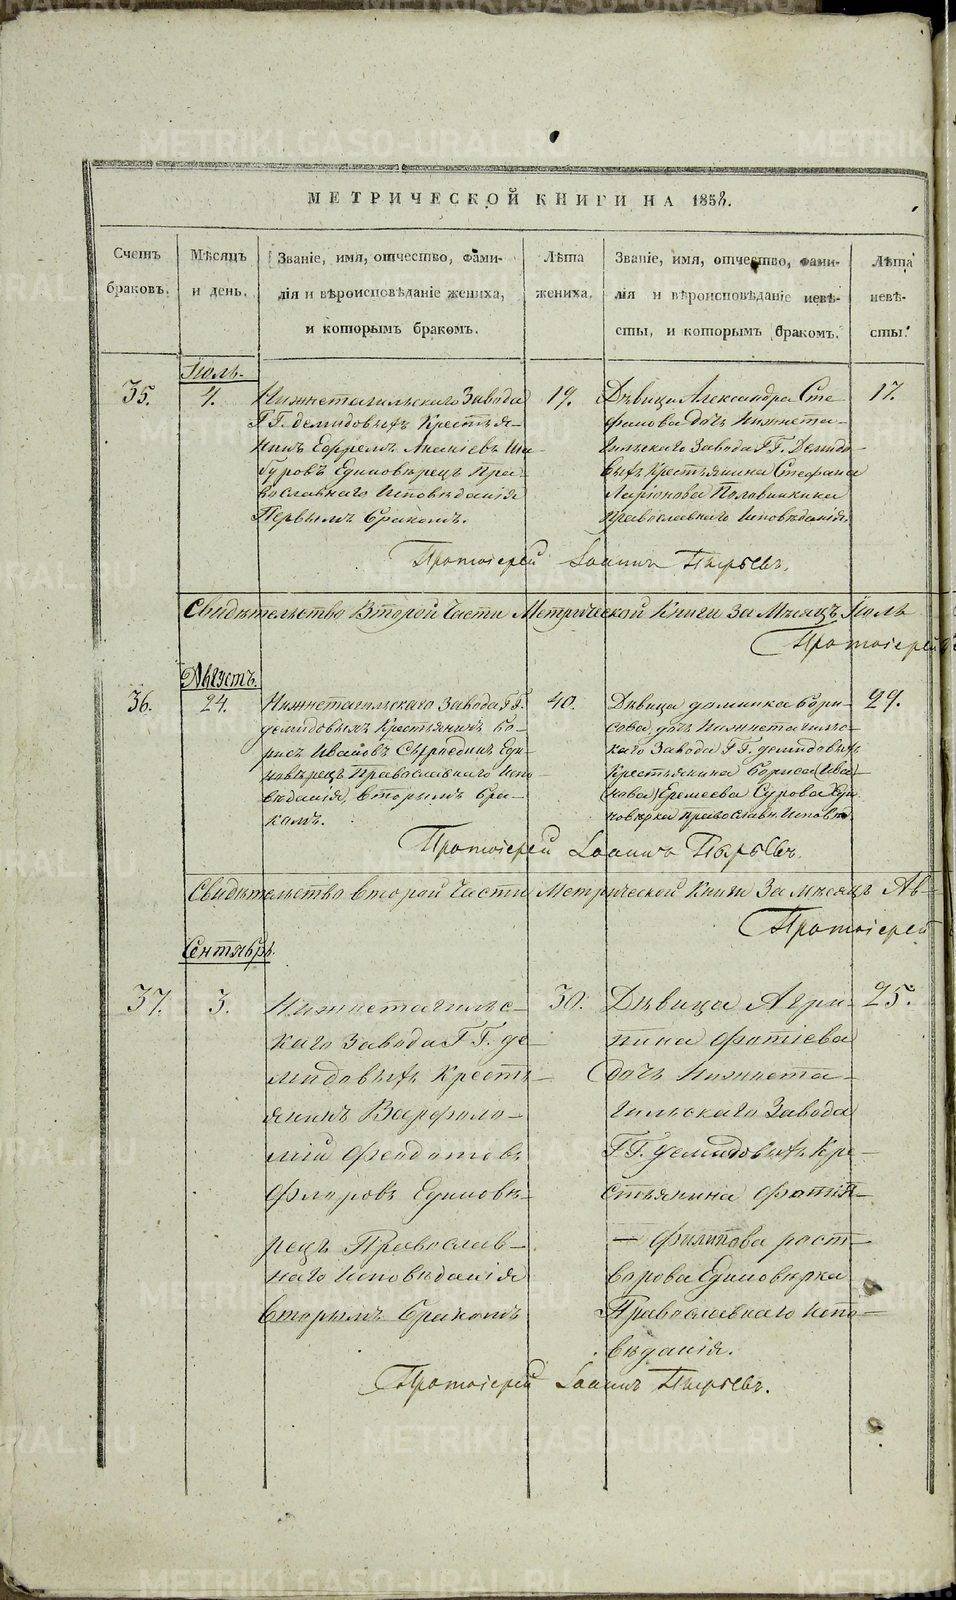 МЕТРИЧЕСКОЙ КНИГИ НА 1858.
Счетъ браковъ.
Мѣсяцъ и день.
Званіе, имя, отчество, фами-
лія и вѣроисповѣданіе жениха,
и которымъ бракомъ.
Лѣта жениха.
Званіе, имя, отчество, фами-
лія и вѣроисповѣданіе невѣ-
сты, и которымъ бракомъ.
Лѣта невѣ-
сты.
Іюль.
35.
4.
Нижнетагильскаго Завода
Г.Г. Демидовыхъ Крестья-
нинъ Ефремъ
Единовѣрецъ Пра-
вославнаго Исповѣданія
Первымъ бракомъ.
19.
Дѣвица Александра Сте-
фанова дочь Нижнета-
гильскаго Завода Г.Г. Демидо-
выхъ Крестьянина Стефана
Ларіонова Половинкина
Православнаго Исповѣданія.
17.
Протоіерей Іоаннъ Пырьевъ.
Свидѣтельство Второй Части Метрической Книги За Мѣсяцъ Іюль
Протоіерей
Августъ.
36.
24.
Нижнетагильскаго Завода Г.Г.
Демидовыхъ Крестьянинъ Бо-
рисъ Ивановъ Еди-
новѣрецъ Православнаго Испо-
вѣданія, вторымъ бра-
комъ.
40.
Дѣвица Домника Бори-
сова дочь Нижнетагильс-
каго Завода Г.Г. Демидовыхъ
Крестьянина Бориса (Ива-
нова) Еремеева Сурова Еди-
новѣрка Православн. Исповѣд.
29.
Протоіерей Іоаннъ Пырьевъ.
Свидѣтельство второй Части Метрической Книги За мѣсяцъ Ав-
Протоіерей
Сентябрь.
37.
3.
Нижнетагильс-
каго Завода Г.Г. Де-
мидовыхъ Кресть-
янинъ Варфоло-
мій Федотовъ
Флоровъ Единовѣ-
рецъ Православ-
наго Исповѣданія
Вторымъ бракомъ
30.
Дѣвица Агри-
пина Фотіева
дочь Нижнета-
гильскаго Завода
Г.Г. Демидовыхъ Кре-
стьянина Фотія
— Филипова раст-
ворова Единовѣрка
Православнаго Испо-
вѣданія.
25.
Протоіерей Іоаннъ Пырьевъ.
METRIKI.GASO-URAL.RU